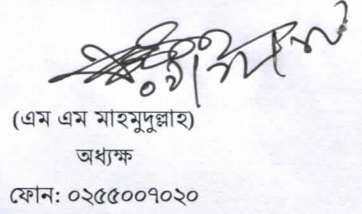 (এম এম মাহমুদুল্লাহ)
অধ্যক্ষ
ফোন: ০২৫৫০০৭০২০